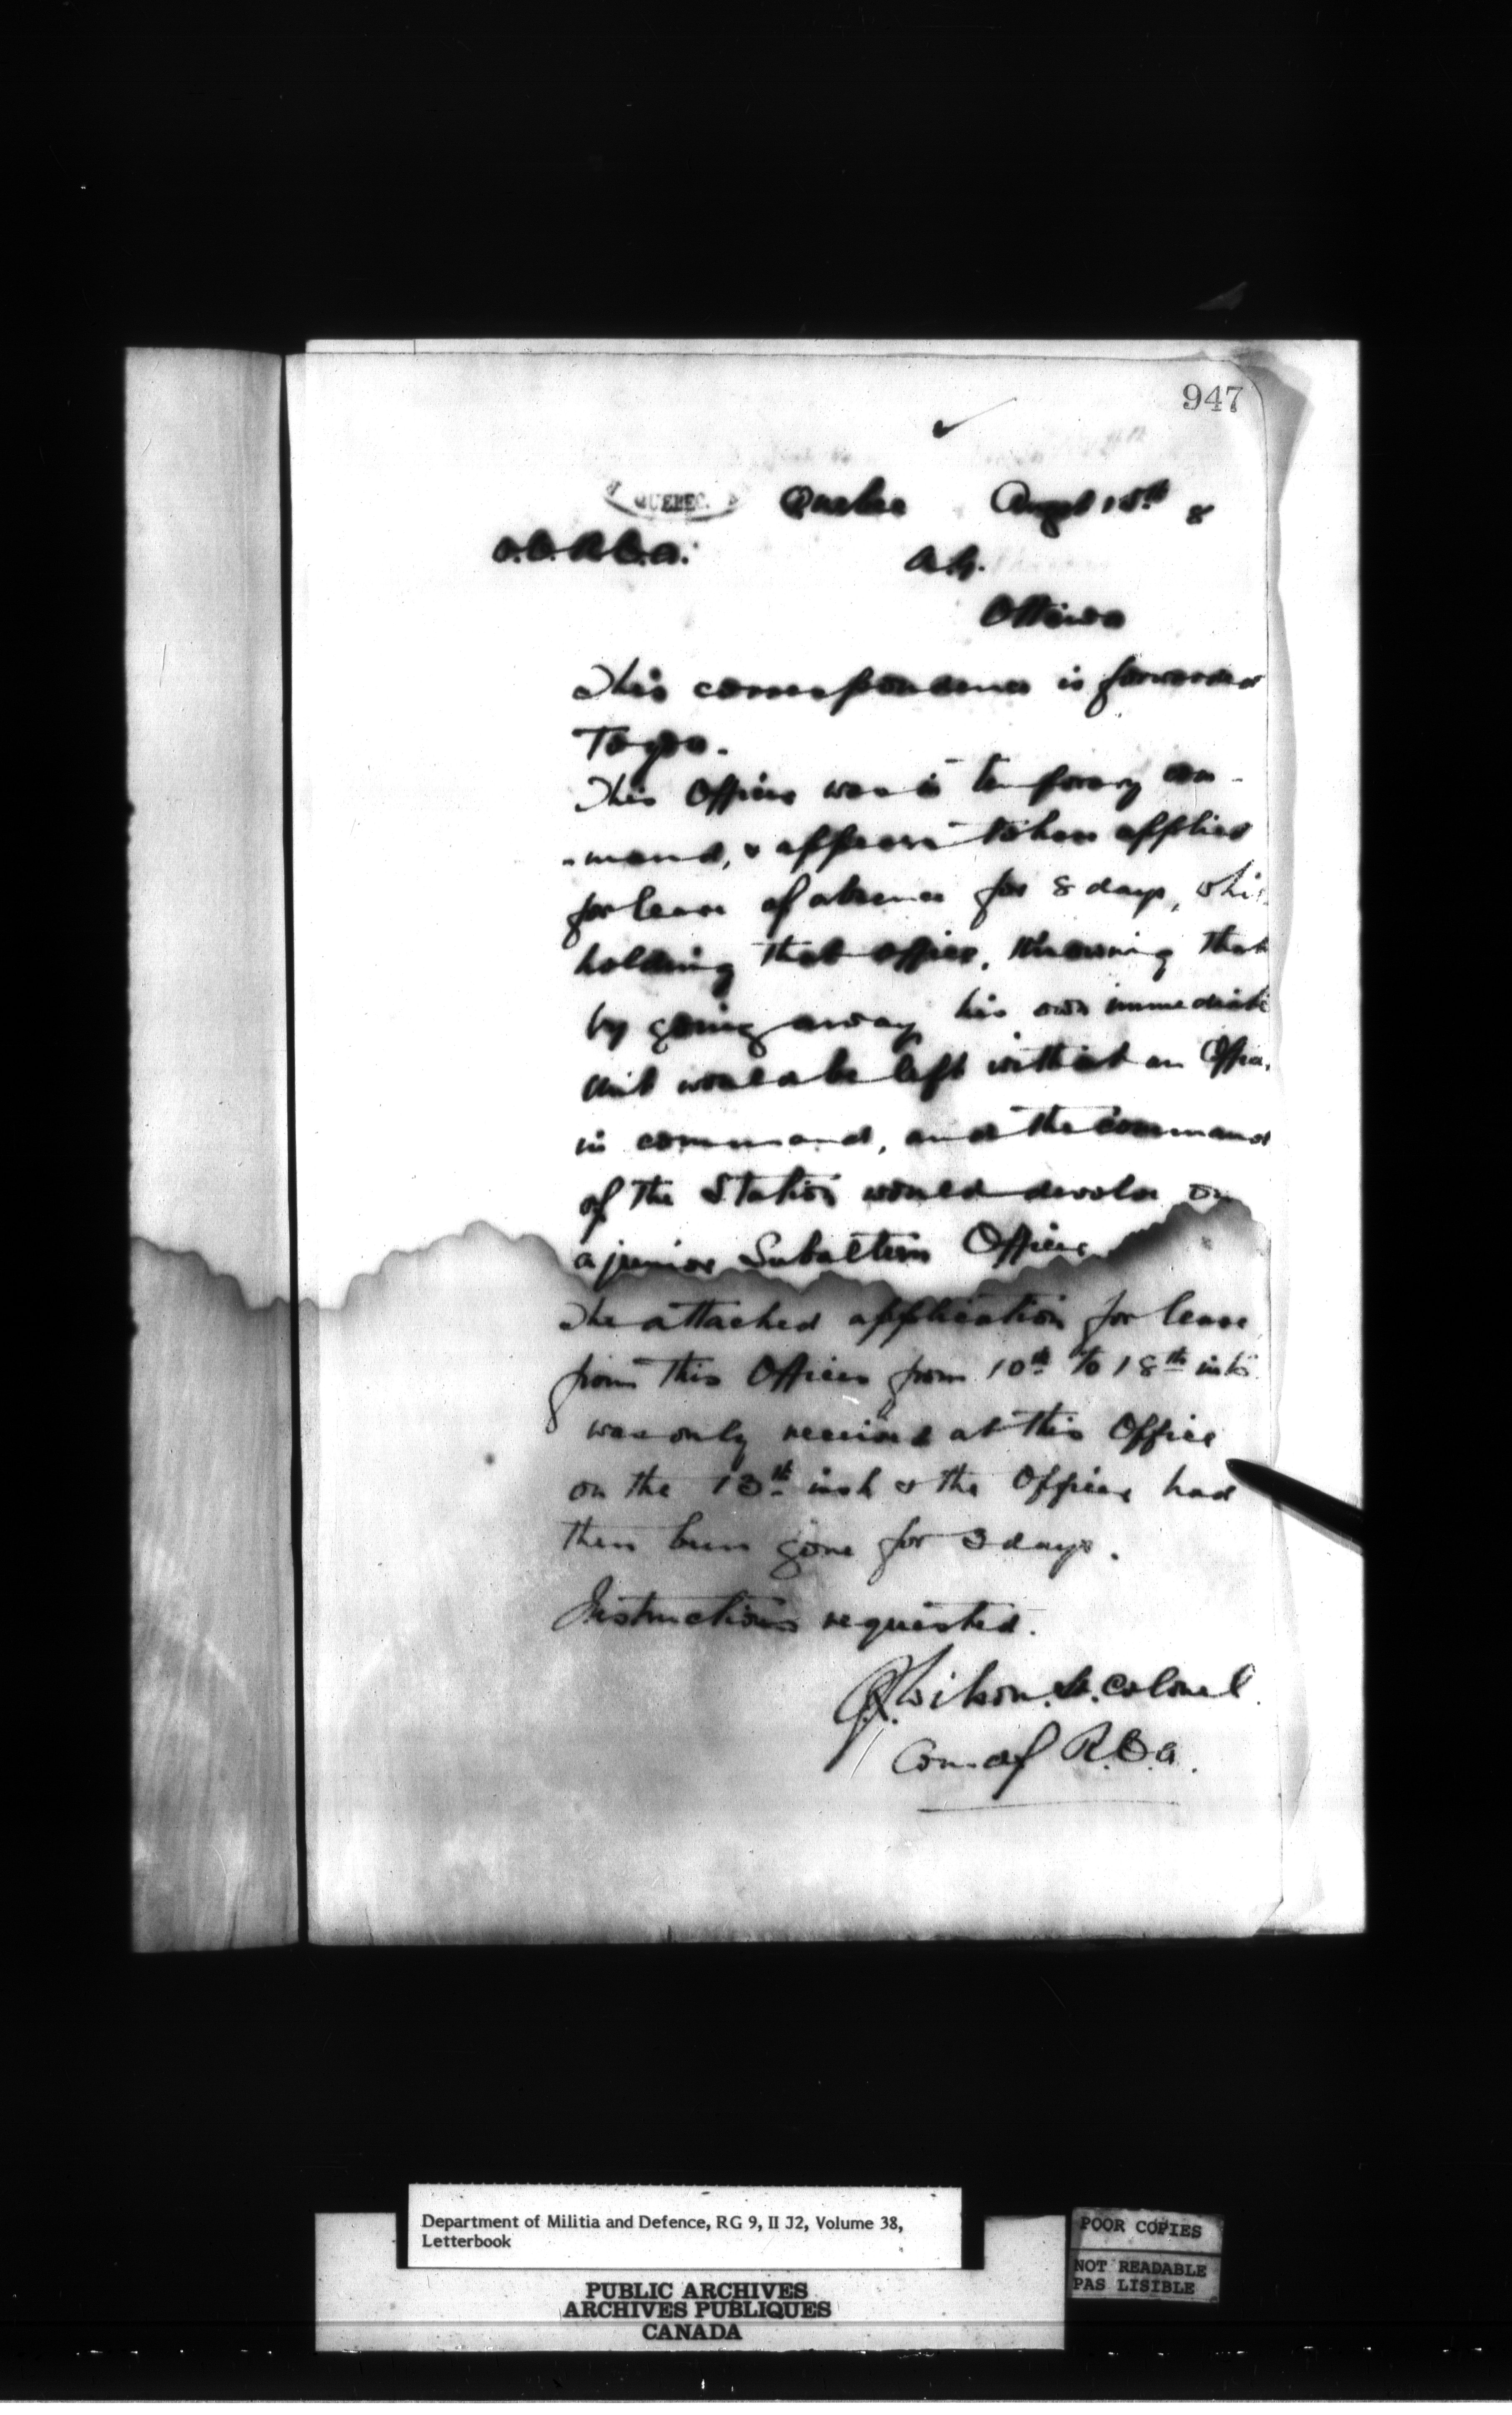 947
QUEBEC.
Quebec Augst 15th 8
O.C. R.C.A. A.G.
Ottawa
This correspondence is forwarded
To you.
This Officer was in temporary com-
-mand, & appears to have applied
for leave of absence for 8 days, whi
holding that office, Knowing that
by going away his own immediate
unit would be left without an Officer
in command, and the command
of the Station would devolve on
a junior Subaltern Officer
The attached application for leave
from this Officer from 10th to 18th inst
was only received at this Office
on the 13th inst & the Officer had
then been gone for 3 days.
Instructions requested.
Wilson Lt. Colonel
Comdg R.C.A.
Department of Militia and Defence, RG 9, II J2, Volume 38,
Letterbook
POOR COPIES
NOT READABLE
PAS LISIBLE
PUBLIC ARCHIVES
ARCHIVES PUBLIQUES
CANADA